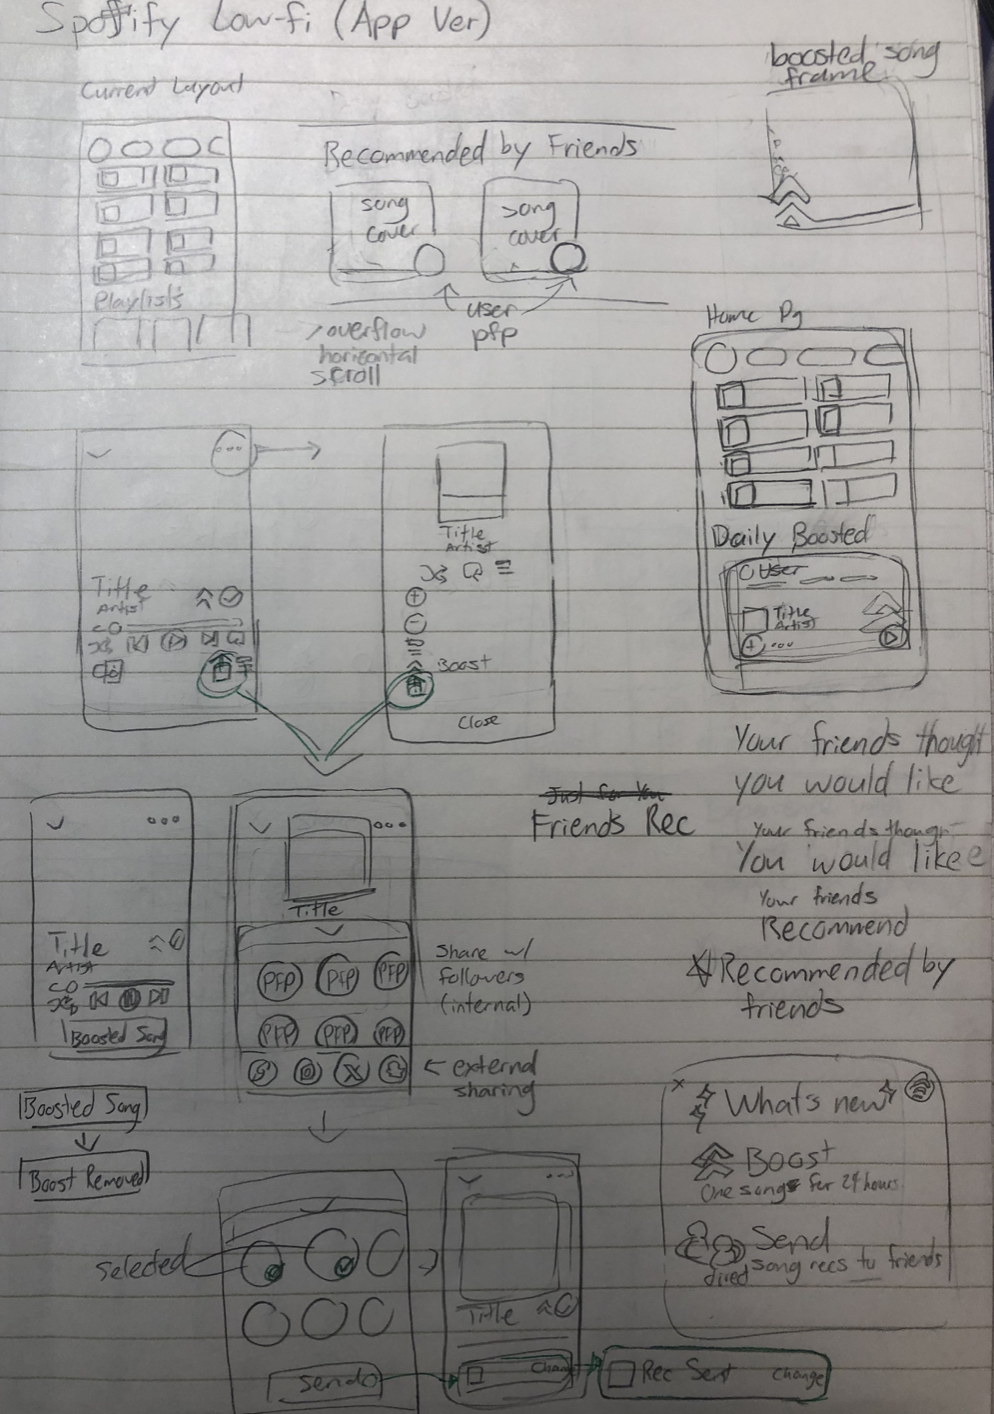 Spotify Low-fi (App Ver)
Current Layout
Playlists
Recommended by Friends
song
cover
song
cover
user
pfp
overflow
horizontal
scroll
boosted song
frame
Home Pg
Daily Boosted
User
Title
Artist
Title
Artist
Title
Artist
Boost
Close
Your friends thought
you would like
Your friends though
You would likee
Your friends
Recommend
Recommended by
friends
Just for You
Friends Rec
Title
Artist
Boosted Song
Title
PFP PFP PFP
PFP PFP PFP
Share w/
followers
(internal)
external
sharing
Boosted Song
Boost Removed
selected
Send
Title
Change
Rec Sent Change
x
What's new
Boost
One songs for 24 hours
Send
direct song recs to friends